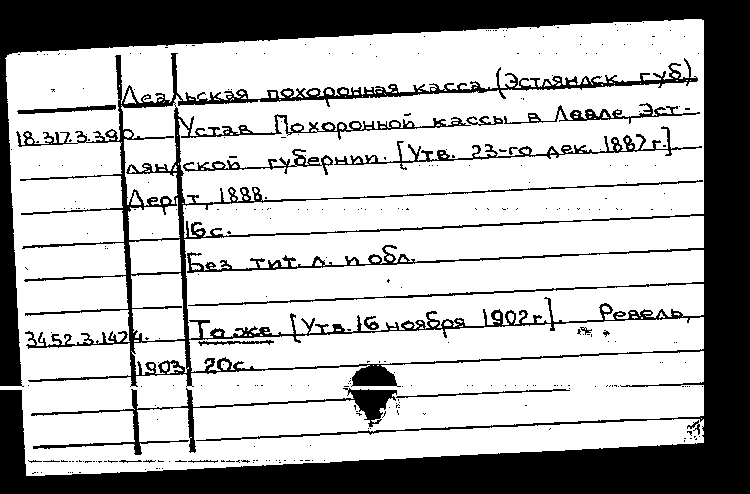 Леальская похоронная касса (Эстляндск. губ)
18.317.3.39б. Устав Похоронной кассы в Леале, Эст-
ляндской губернии. [Утв. 23-го дек. 1887 г.].
Дерпт, 1888.
16 с.
Без тит. л. и обл.
34.52.3.142а. То же. [Утв. 16 ноября 1902 г.]. Ревель,
1903. 20 с.